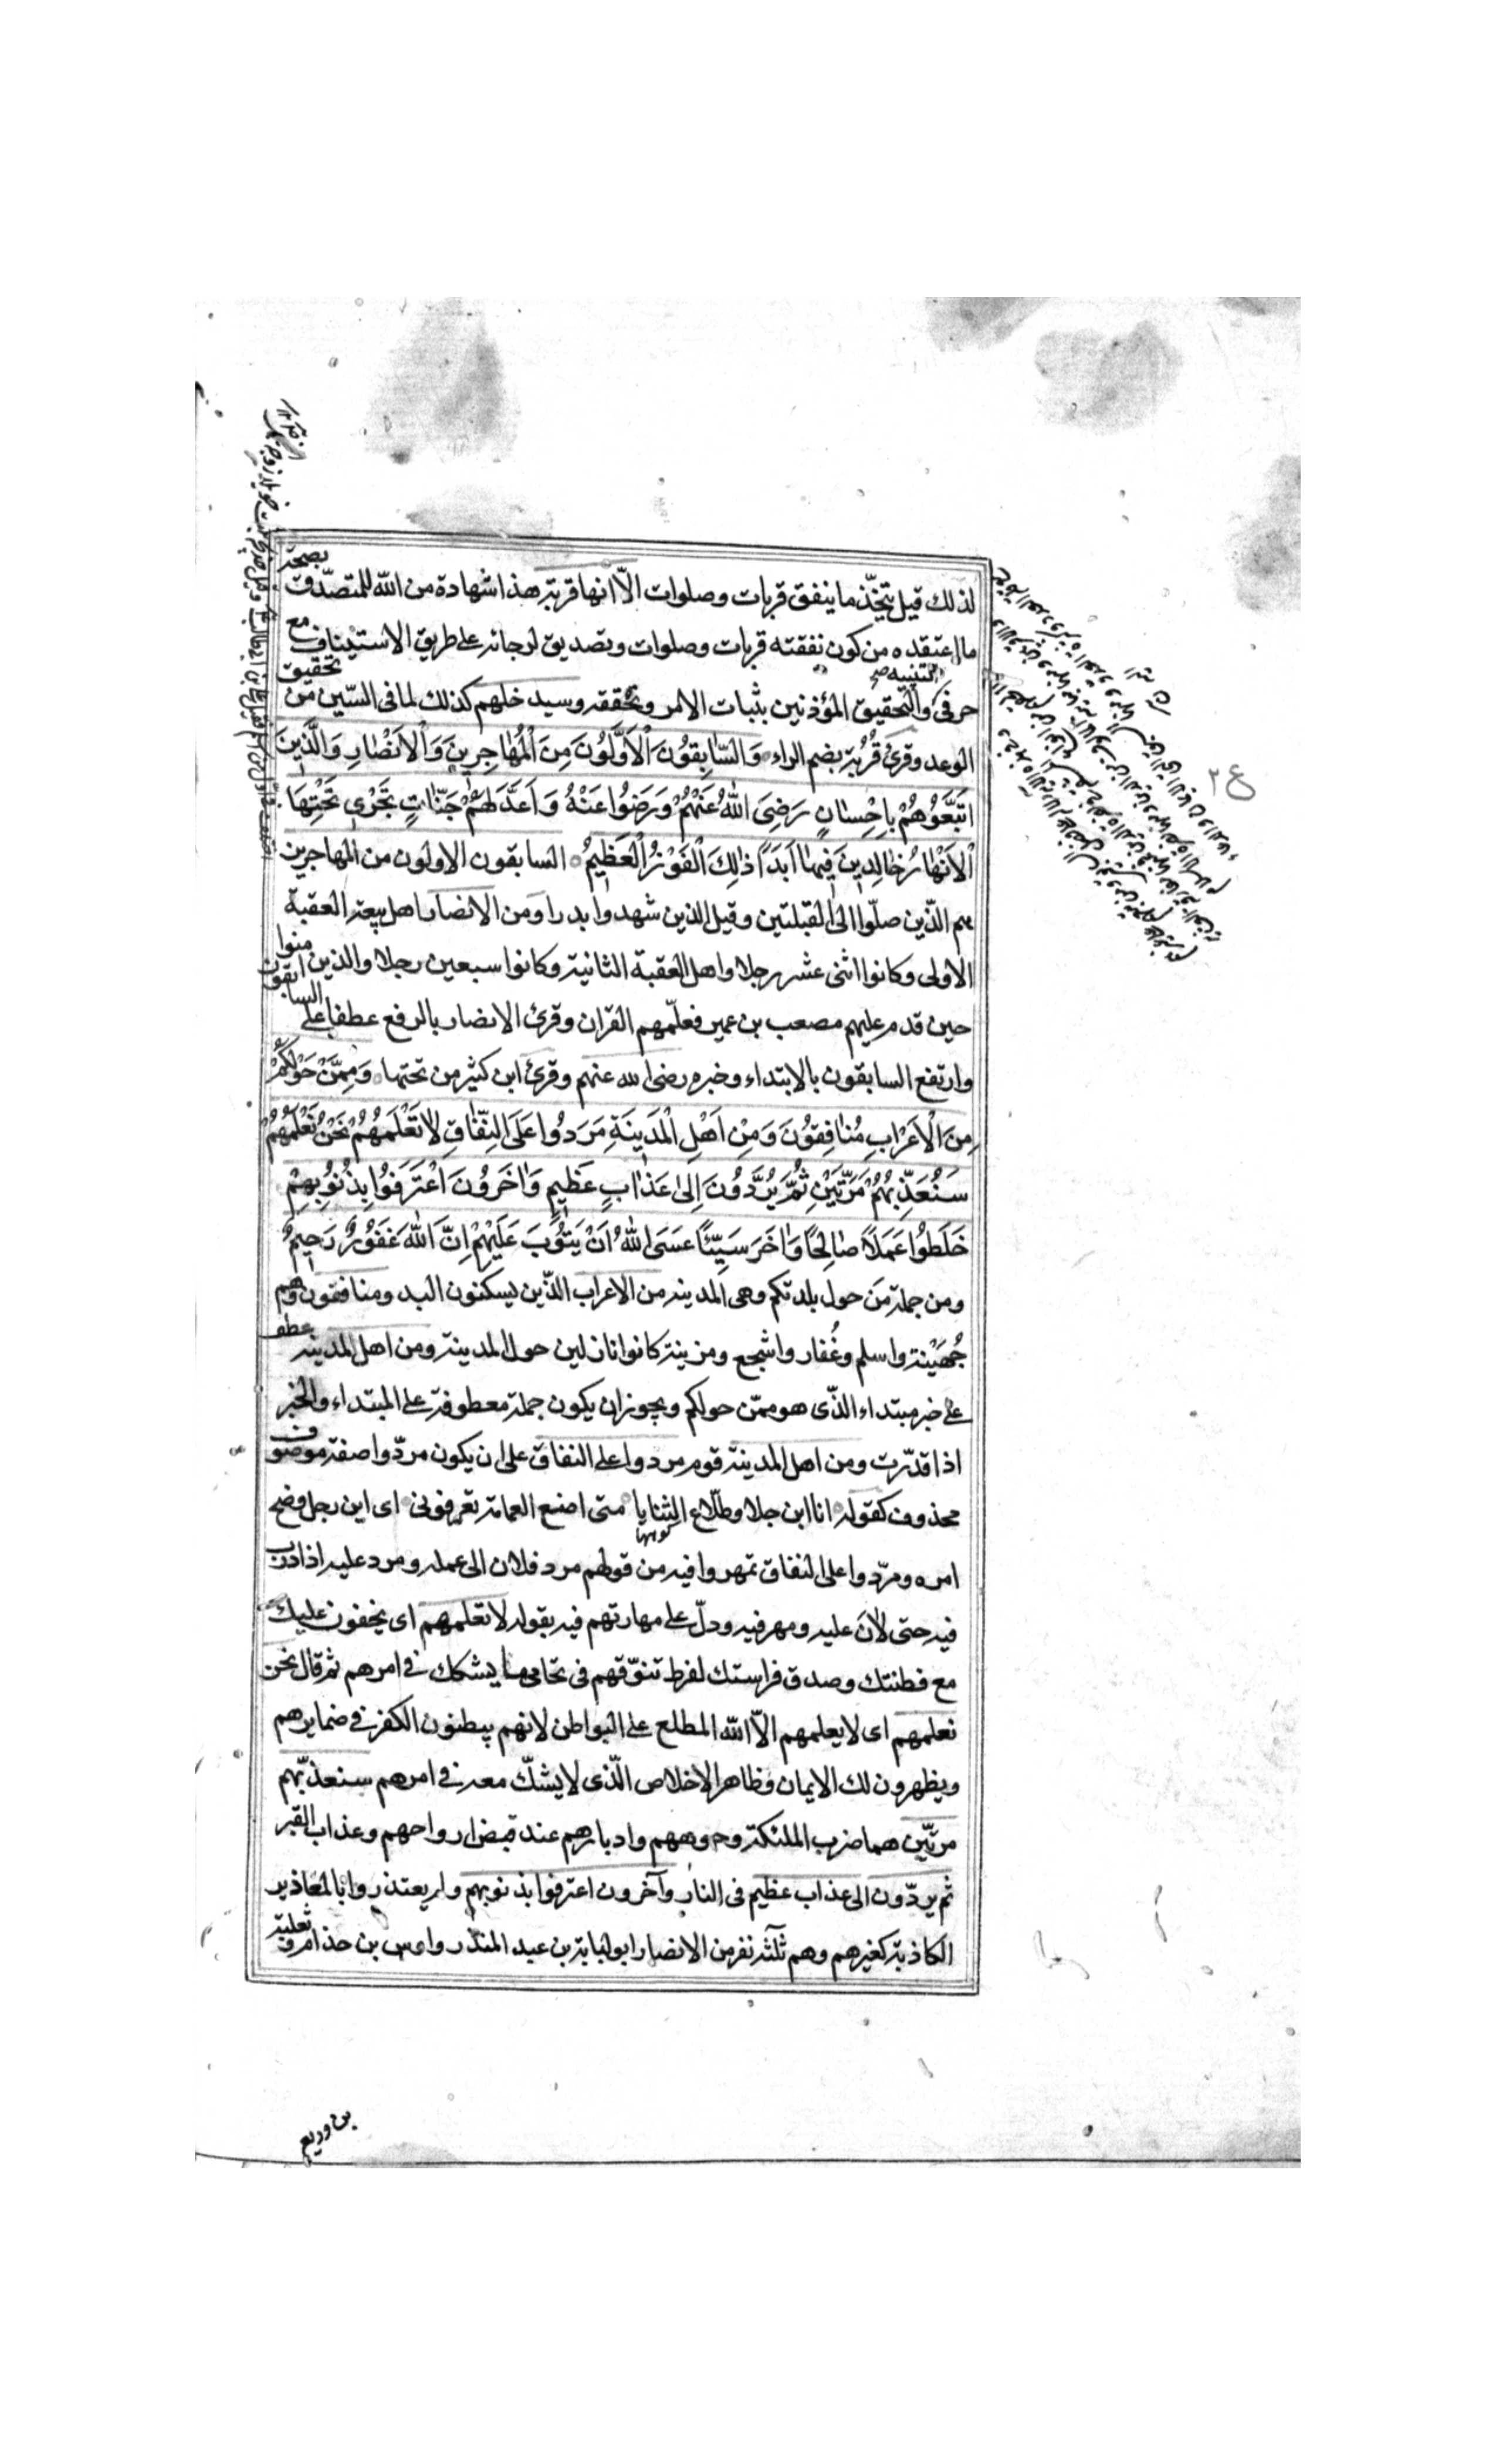 لذلك قيل يتخذ ما ينفق قربات وصلوات الّا انها قربة هذا شهادة من الله للمتصدّق بصحة
ما اعتقده من كون نفقته قربات وصلوات وتصديق لرجائه على طريق الاستيناف مع
حرفى التنبيه والتحقيق المؤذنين بثبات الامر وتحققه وسيدخلهم كذلك لما فى السّين من تحقيق
الوعد وقرئ قُرُبة بضم الراء وَالسّابِقُونَ الْاَوَّلُونَ مِنَ الْمُهاجِرينَ وَالْاَنْصارِ وَالَّذينَ
اتَّبَعُوهُمْ بِاِحْسانٍ رَضِىَ اللهُ عَنْهُمْ وَرَضُوا عَنْهُ وَاَعَدَّ لَهُمْ جَنّاتٍ تَجْرى تَحْتِهَا
الْاَنْهارُ خالِدينَ فيها اَبَدًا ذلِكَ الْفَوْزُ الْعَظيمُ السابقون الاولون من المهاجرين
هم الّذين صلّوا الى القبلتين وقيل الذين شهدوا بدرا ومن الانصار اهل بيعة العقبة
الاولى وكانوا اثنى عشر رجلا واهل العقبة الثانية وكانوا سبعين رجلا والذين امنوا
حين قدم عليهم مصعب بن عمير فعلّمهم القران وقرئ الانصار بالرفع عطفا على السابقون
وارتفع السابقون بالابتداء وخبره رضى الله عنهم وقرئ ابن كثير من تحتها وَمِمَّنْ حَوْلَكُمْ
مِنَ الْاَعْرابِ مُنافِقُونَ وَمِنْ اَهْلِ الْمَدينَةِ مَرَدُوا عَلَى النِّفاقِ لا تَعْلَمُهُمْ نَحْنُ نَعْلَمُهُمْ
سَنُعَذِّبُهُمْ مَرَّتَيْنِ ثُمَّ يُرَدُّونَ اِلى عَذابٍ عَظيمٍ وَاخَرُونَ اعْتَرَفُوا بِذُنُوبِهِمْ
خَلَطُوا عَمَلًا صالِحًا وَاخَرَ سَيِّئًا عَسَى اللهُ اَنْ يَتُوبَ عَلَيْهِمْ اِنَّ اللهَ غَفُورٌ رَحيمٌ
ومن جملة من حول بلدتكم وهى المدينة من الاعراب الّذين يسكنون البدو منافقون وهم
جُهَيْنة واسلم وغُفار واشجع ومزينة كانوا نازلين حول المدينة ومن اهل المدينة عطف
على خبر مبتداء الذّى هو ممّن حولكم ويجوز ان يكون جملة معطوفة على المبتداء والخبر
اذا قدّرت ومن اهل المدينة قوم مردوا على النفاق على ان يكون مردّوا صفة موصوف
محذوف كقوله انا ابن جلا وطلّاع الثنايا متى اضع العمامة تعرفونى اى ابن رجل وضح
امره ومردّوا على النفاق تمهروا فيه من قولهم مرد فلان الى عمله ومرد عليه اذا درب
فيه حتى لانَ عليه ومهر فيه ودلّ على مهارتهم فيه بقوله لا تعلمهم اى يخفون عليك
مع فطنتك وصدق فراستك لفرط تنوّقهم فى تحامى ما يشكك فى امرهم ثم قال نحن
نعلمهم اى لا يعلمهم الاّ الله المطلع على البواطن لانهم يبطنون الكفر فى ضمايرهم
ويظهرون لك الايمان وظاهر الاخلاص الّذى لا يشكّ معه فى امرهم سنعذّبهم
مرتّين هما ضرب الملئكة وجوههم وادبارهم عند قبض ارواحهم وعذاب القبر
ثم يردّون الى عذاب عظيم فى النار وآخرون اعترفوا بذنوبهم ولم يعتذروا بالمعاذير
الكاذبة كغيرهم وهم ثلثة نفر من الانصار ابو لبابة بن عبد المنذر واوس بن حذام وثعلبة
بن وديع